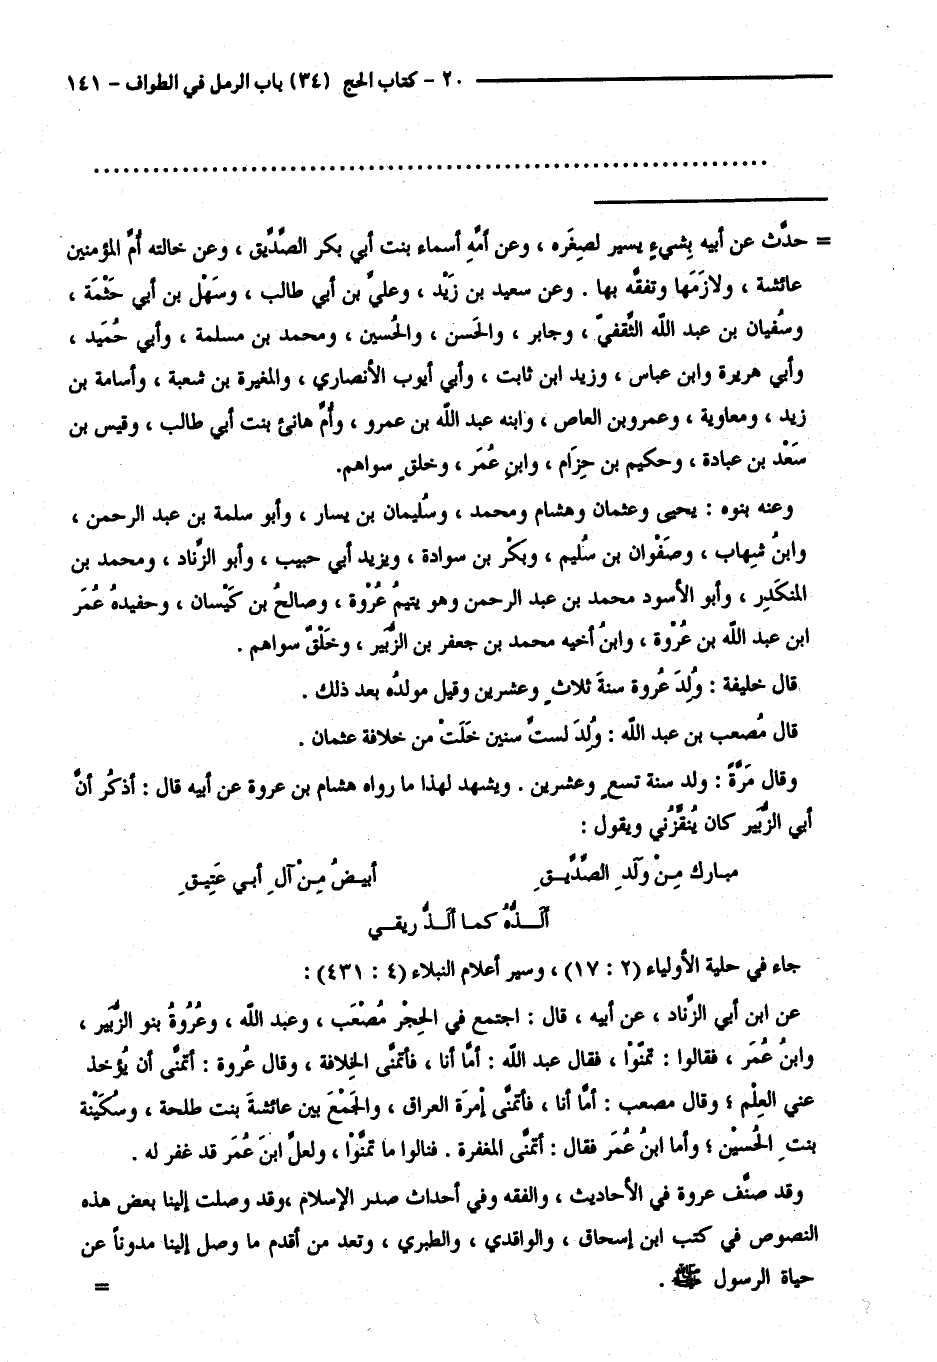 ٢٠ - كتاب الحج (٣٤) باب الرمل في الطواف - ١٤١
= حدَّث عن أبيه بِشيءٍ يسير لصِغَره ، وعن أمَّهِ أسماء بنت أبي بكر الصَّدَّيق ، وعن خالته أُمَّ المؤمنين
عائشة ، ولازَمَها وتفقَّه بها . وعن سعيد بن زَيْد ، وعليَّ بن أبي طالب ، وسَهْل بن أبي حَثْمَة ،
وسُفيان بن عبد اللّه الثَّقفيّ ، وجابر ، والحَسن ، والحُسين ، ومحمد بن مسلمة ، وأبي حُمَيد ،
وأبي هريرة وابن عباس ، وزيد ابن ثابت ، وأبي أيوب الأنصاري ، والمغيرة بن شعبة ، وأسامة بن
زيد ، ومعاوية ، وعمروبن العاص ، وابنه عبد اللّه بن عمرو ، وأُمَّ هانئ بنت أبي طالب ، وقيس بن
سَعْد بن عبادة ، وحكيم بن حِزَام ، وابنِ عُمَر ، وخلقٍ سواهم.
وعنه بنوه : يحيى وعثمان وهشام ومحمد ، وسُليمان بن يسار ، وأبو سلمة بن عبد الرحمن ،
وابنُ شِهاب ، وصَفْوان بن سُليم ، وبكْر بن سوادة ، ويزيد أبي حبيب ، وأبو الزَّناد ، ومحمد بن
المنكَدِر ، وأبو الأسود محمد بن عبد الرحمن وهو يتيمُ عُرْوة ، وصالحُ بن كَيْسان ، وحفيدهُ عُمَر
ابن عبد اللّه بن عُرْوة ، وابنُ أخيه محمد بن جعفر بن الزُّبَير ، وخَلْقٌ سواهم .
قال خليفة : وُلِدَ عُروة سنةَ ثلاثٍ وعشرين وقيل مولدُه بعد ذلك .
قال مُصعب بن عبد اللّه : وُلِدَ لستَّ سنين خَلَتْ من خلافة عثمان .
وقال مَرَّةً : ولد سنة تسعٍ وعشرين . ويشهد لهذا ما رواه هشام بن عروة عن أبيه قال : أذكُر أنَّ
أبي الزُّبَير كان يُنقَّزُني ويقول :
مبارك مِنْ ولَدِ الصَّدَّيـقِ أبيـضُ مِـنْ آلِ أبـي عَتِيـقِ
أَلَـــذُّهُ كمـا أَلَـذُّ ريقـي
جاء في حلية الأولياء (٢ : ١٧) ، وسير أعلام النبلاء (٤ : ٤٣١) :
عن ابن أبي الزَّناد ، عن أبيه ، قال : اجتمع في الحِجْر مُصْعَب ، وعبد اللّه ، وعُرُوةُ بنو الزُّبَير ،
وابنُ عُمَر ، فقالوا : تمنّوْا ، فقال عبد اللّه : أمَّا أنا ، فأتمنَّى الخِلافة ، وقال عُروة : أتمنَّى أن يُؤخذ
عني العِلْم ؛ وقال مصعب : أمَّا أنا ، فأتمنَّى إمْرَة العراق ، والجَمْعَ بين عائشةَ بنت طلحة ، وسُكَيْنة
بنتِ الحُسيْن ؛ وأما ابنُ عُمَر فقال : أتمنَّى المغفرة . فنالوا ما تمنَّوْا ، ولعلَّ ابنَ عُمَر قد غفر له .
وقد صنَّف عروة في الأحاديث ، والفقه وفي أحداث صدر الإسلام ،وقد وصلت إلينا بعض هذه
النصوص في كتب ابن إسحاق ، والواقدي ، والطبري ، وتعد من أقدم ما وصل إلينا مدوناً عن
حياة الرسول ﷺ . =